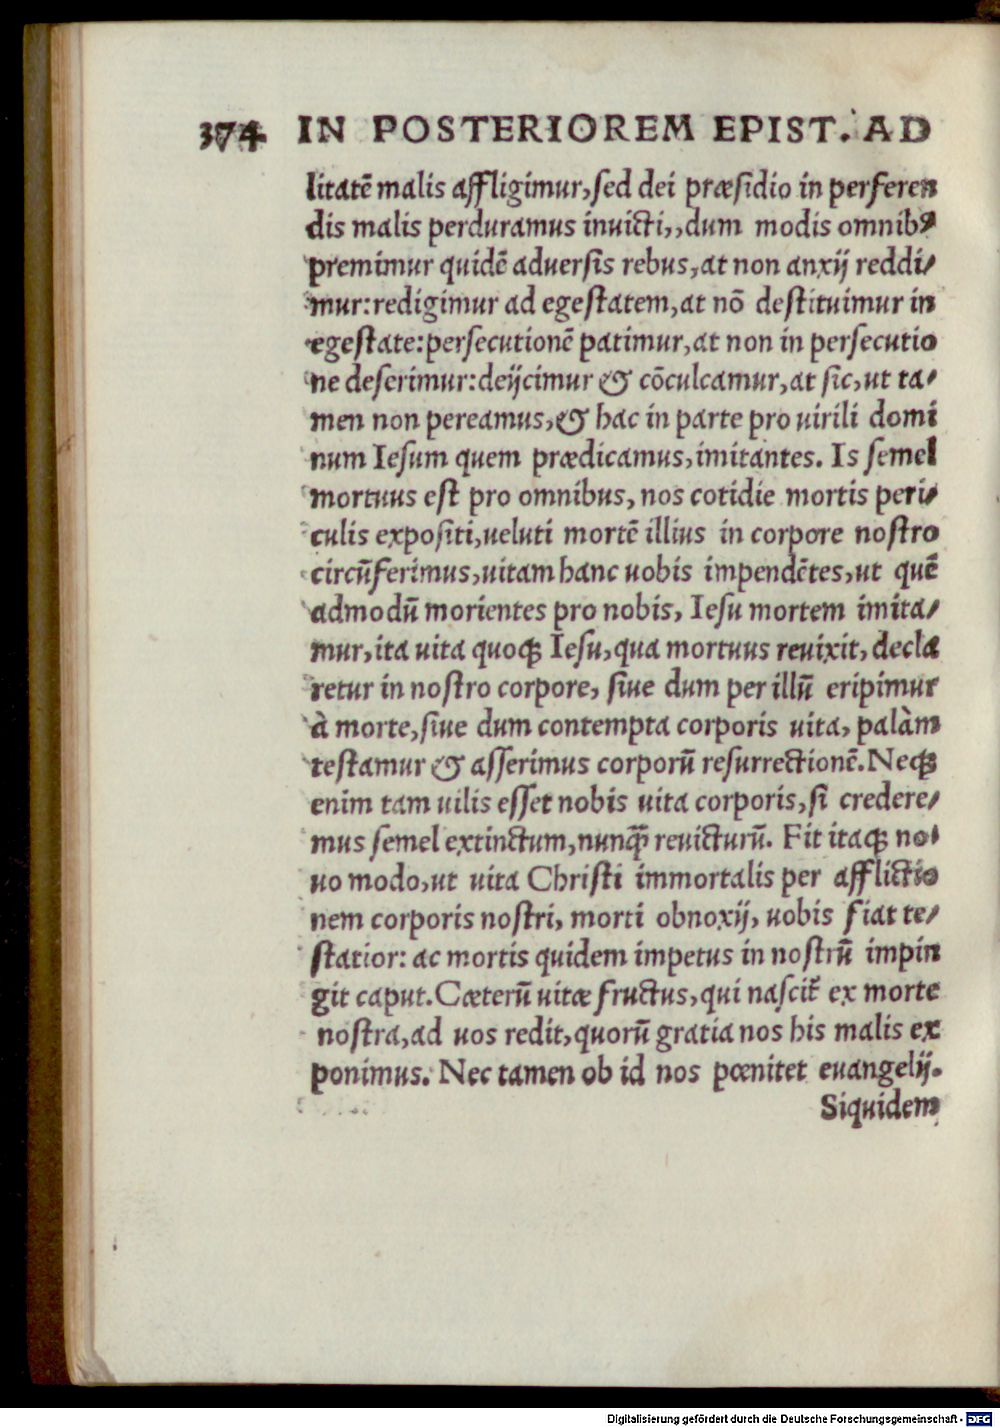 374 IN POSTERIOREM EPIST. AD
litatẽ malis affligimur, sed dei præsidio in perferen
dis malis perduramus inuicti,, dum modis omnibꝰ
premimur quidẽ aduersis rebus, at non anxij reddi/
mur: redigimur ad egestatem, at nõ destituimur in
egestate: persecutionẽ patimur, at non in persecutio
ne deserimur: deijcimur & cõculcamur, at sic, ut ta/
men non pereamus, & hac in parte pro uirili domi
num Iesum quem prædicamus, imitantes. Is semel
mortuus est pro omnibus, nos cotidie mortis peri/
culis expositi, ueluti mortẽ illius in corpore nostro
circũferimus, uitam hanc uobis impendẽtes, ut quẽ
admodũ morientes pro nobis, Iesu mortem imita/
mur, ita uita quoqꝫ Iesu, qua mortuus reuixit, decla
retur in nostro corpore, siue dum per illũ eripimur
à morte, siue dum contempta corporis uita, palàm
testamur & asserimus corporũ resurrectionẽ. Neqꝫ
enim tam uilis esset nobis uita corporis, si credere/
mus semel extinctum, nunq̃ reuicturũ. Fit itaqꝫ no/
uo modo, ut uita Christi immortalis per afflictio
nem corporis nostri, morti obnoxij, uobis fiat te/
statior: ac mortis quidem impetus in nostrũ impin
git caput. Cæterũ uitæ fructus, qui nascit᷑ ex morte
nostra, ad uos redit, quorũ gratia nos his malis ex
ponimus. Nec tamen ob id nos pœnitet euangelij.
Siquidem
Digitalisierung gefördert durch die Deutsche Forschungsgemeinschaft - DFG